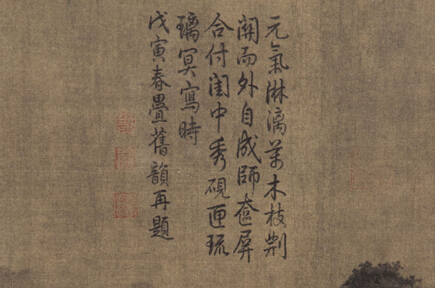 元氣淋漓萬木枝荆
關而外自成師奩屏
合付閨中秀硯匣琉
璃冥寫時
戊寅春疊舊韻再題